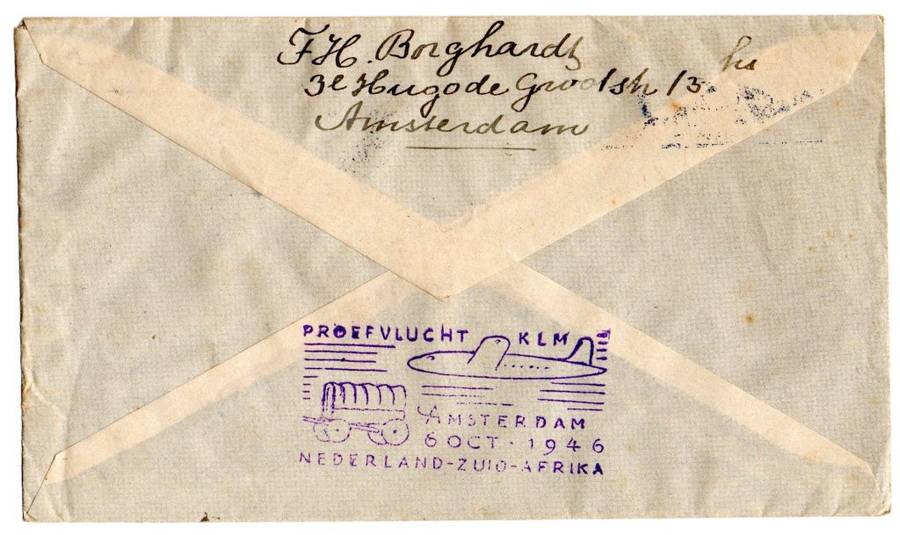 F.H. Borghardt hs
3e Hugo de Grootstr 13
Amsterdam
PROEFVLUCHT KLM
AMSTERDAM
6 OCT · 1946
NEDERLAND-ZUID-AFRIKA